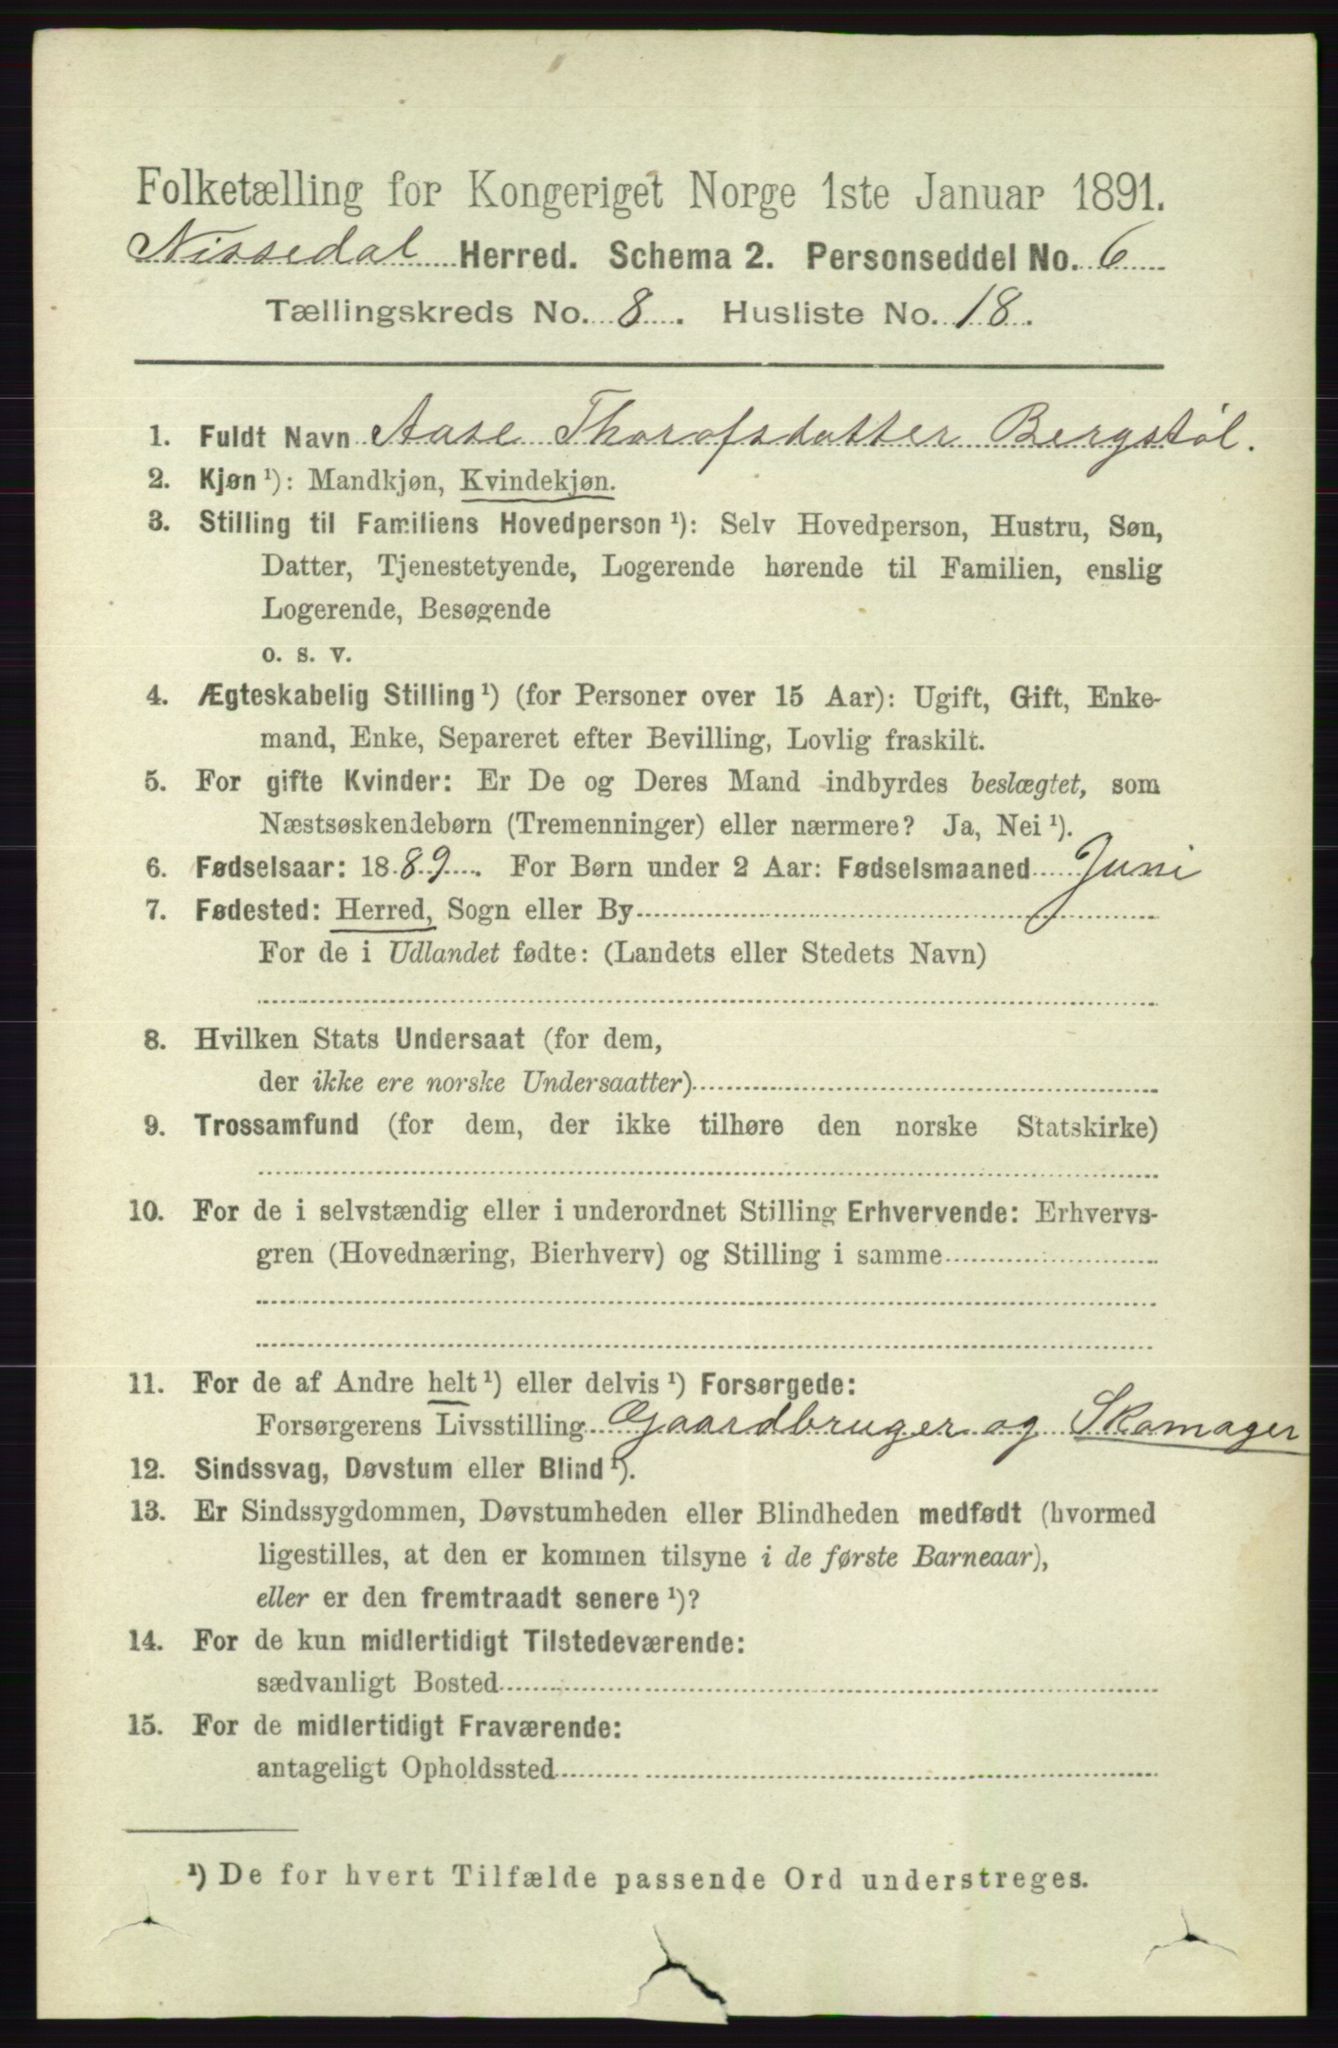 Folketælling for Kongeriget Norge 1ste Januar 1891.
Nissedal Herred. Schema 2. Personseddel No. 6
Tællingskreds No. 8. Husliste No. 18.
1. Fuldt Navn Aase Thorofsdatter Bergstøl.
2. Kjøn ¹): Mandkjøn, Kvindekjøn.
3. Stilling til Familiens Hovedperson ¹): Selv Hovedperson, Hustru, Søn,
Datter, Tjenestetyende, Logerende hørende til Familien, enslig
Logerende, Besøgende
o. s. v.
4. Ægteskabelig Stilling ¹) (for Personer over 15 Aar): Ugift, Gift, Enke-
mand, Enke, Separeret efter Bevilling, Lovlig fraskilt.
5. For gifte Kvinder: Er De og Deres Mand indbyrdes beslægtet, som
Næstsøskendebørn (Tremenninger) eller nærmere? Ja, Nei ¹).
6. Fødselsaar: 1889. For Børn under 2 Aar: Fødselsmaaned Juni
7. Fødested: Herred, Sogn eller By
For de i Udlandet fødte: (Landets eller Stedets Navn)
8. Hvilken Stats Undersaat (for dem,
der ikke ere norske Undersaatter)
9. Trossamfund (for dem, der ikke tilhøre den norske Statskirke)
10. For de i selvstændig eller i underordnet Stilling Erhvervende: Erhvervs-
gren (Hovednæring, Bierhverv) og Stilling i samme
11. For de af Andre helt ¹) eller delvis ¹) Forsørgede:
Forsørgerens Livsstilling Gaardbruger og Skomager
12. Sindssvag, Døvstum eller Blind ¹).
13. Er Sindssygdommen, Døvstumheden eller Blindheden medfødt (hvormed
ligestilles, at den er kommen tilsyne i de første Barneaar),
eller er den fremtraadt senere ¹)?
14. For de kun midlertidigt Tilstedeværende:
sædvanligt Bosted
15. For de midlertidigt Fraværende:
antageligt Opholdssted
¹) De for hvert Tilfælde passende Ord understreges.